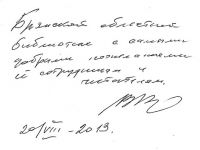 Брянской областной
библиотеке с самыми
добрыми пожеланиями
её сотрудникам и
читателям.
20/VIII - 2013.